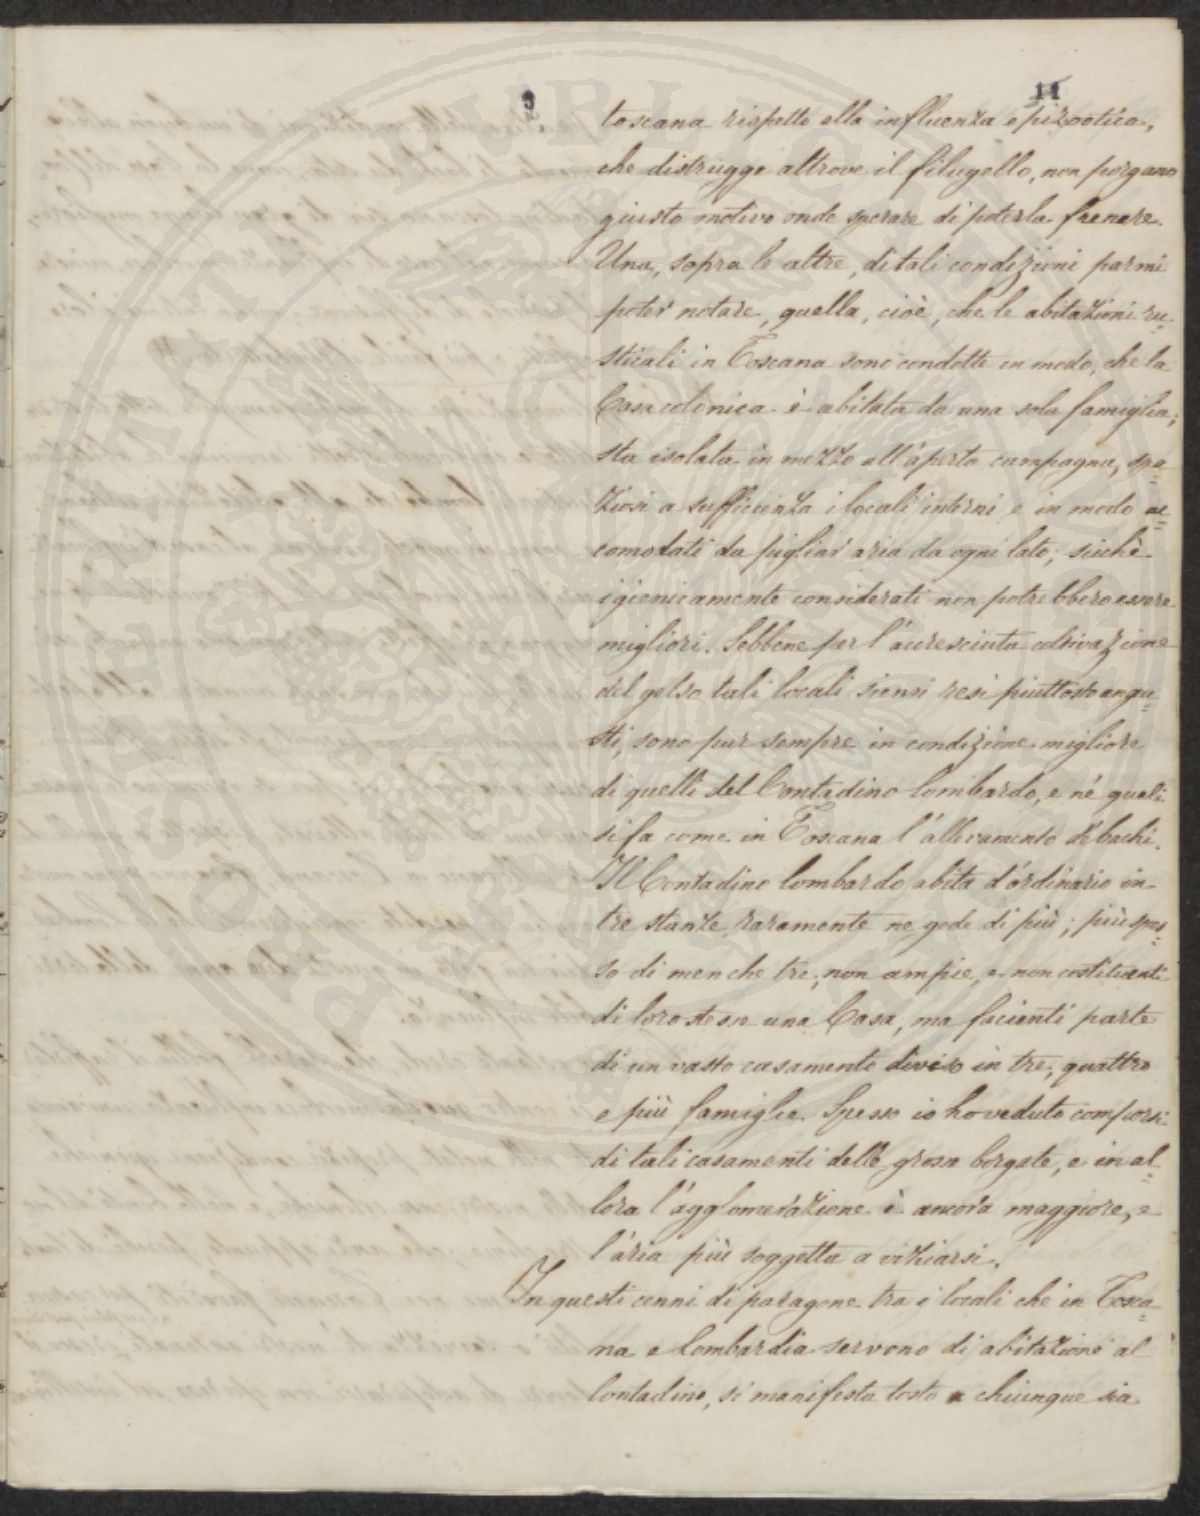 2.
11
toscana rispetto alla influenza epizootica,
che distrugge altrove il filugello, non porgano
giusto motivo onde sperare di poterla frenare.
Una, sopra le altre, di tali condizioni parmi
poter notare, quella, cioè, che le abitazioni ru-
sticali in Toscana sono condotte in modo, che la
Casa colonica è abitata da una sola famiglia;
sta isolata in mezzo all'aperta campagna, spa-
ziosi a sufficienza i locali interni e in modo ac-
comodati da pigliar aria da ogni lato; sicchè
igienicamente considerati non potrebbero essere
migliori. Sebbene per l'accresciuta coltivazione
del gelso tali locali siensi resi piuttosto angu-
sti, sono pur sempre in condizione migliore
di quelli del Contadino lombardo, e né quali
si fa come in Toscana l'allevamento de' bachi.
Il Contadino lombardo abita d'ordinario in
tre stanze, raramente ne gode di più; più spes-
so di men che tre, non ampie, e non costituenti
di loro stesse una Casa, ma facienti parte
di un vasto casamento diviso in tre, quattro
e più famiglie. Spesso io ho veduto comporsi
di tali casamenti delle grosse borgate, e in al-
lora l'agglomerazione è ancora maggiore, e
l'aria più soggetta a viziarsi.
In questi cenni di paragone tra i locali che in Tosca-
na e Lombardia servono di abitazione al
Contadino, si manifesta tosto a chiunque sia